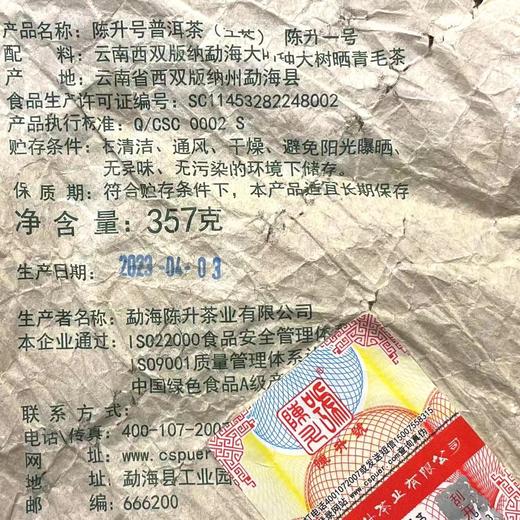 产品名称：陈升号普洱茶（生茶） 陈升一号
配 料：云南西双版纳勐海大 种大树晒青毛茶
产 地：云南省西双版纳州勐海县
食品生产许可证编号：SC11453282248002
产品执行标准：Q/CSC 0002 S
贮存条件：在清洁、通风、干燥、避免阳光曝晒、
无异味、无污染的环境下储存。
保 质 期：符合贮存条件下，本产品适宜长期保存
净 含 量：357克
生产日期：2023-04-03
生产者名称：勐海陈升茶业有限公司
本企业通过：ISO22000食品安全管理体
ISO9001质量管理体系
中国绿色食品A级产
联系方式：
电话\传真：400-107-200
网 址：www.cspuer
地 址：勐海县工业园
邮 编：666200
陈升号
打电话4001077007或发送短信15007558315
登录网站www.cspuer.com查询真伪
茶业有限公司